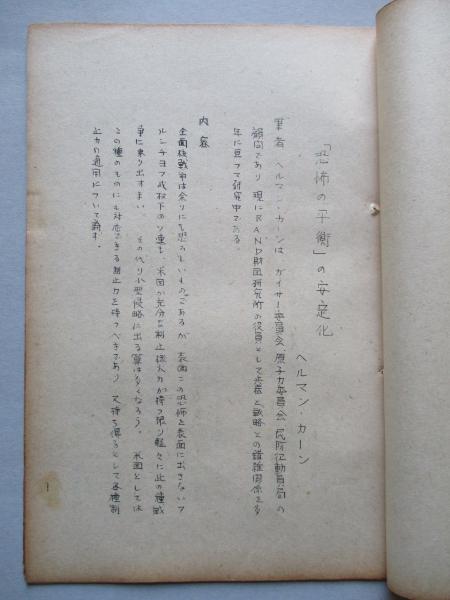 「恐怖の平衡」の安定化
ヘルマン・カーン
筆者 ヘルマン・カーンは、ガイサー委員会、原子力委員会、民防征動員局の
顧問であり 現にRAND財団研究所の役員として 兵器と戦略との錯雑関係を
年に亘って研究中である。
内容
全面核戦争は余りにも恐ろしいものであるが 表面この恐怖を表面に出さないフ
ルシチョフ政权下のソ連も、米国が充分な制止核火力が持つ限り軽々に此の種戦
争に乗り出すまい その代り小型侵略に出る算は多くなろう。 米国としては
この種のものにも対応できる制止力を持つべきであり 又持ち得るとして各種制
止力の適用について論ず。
1